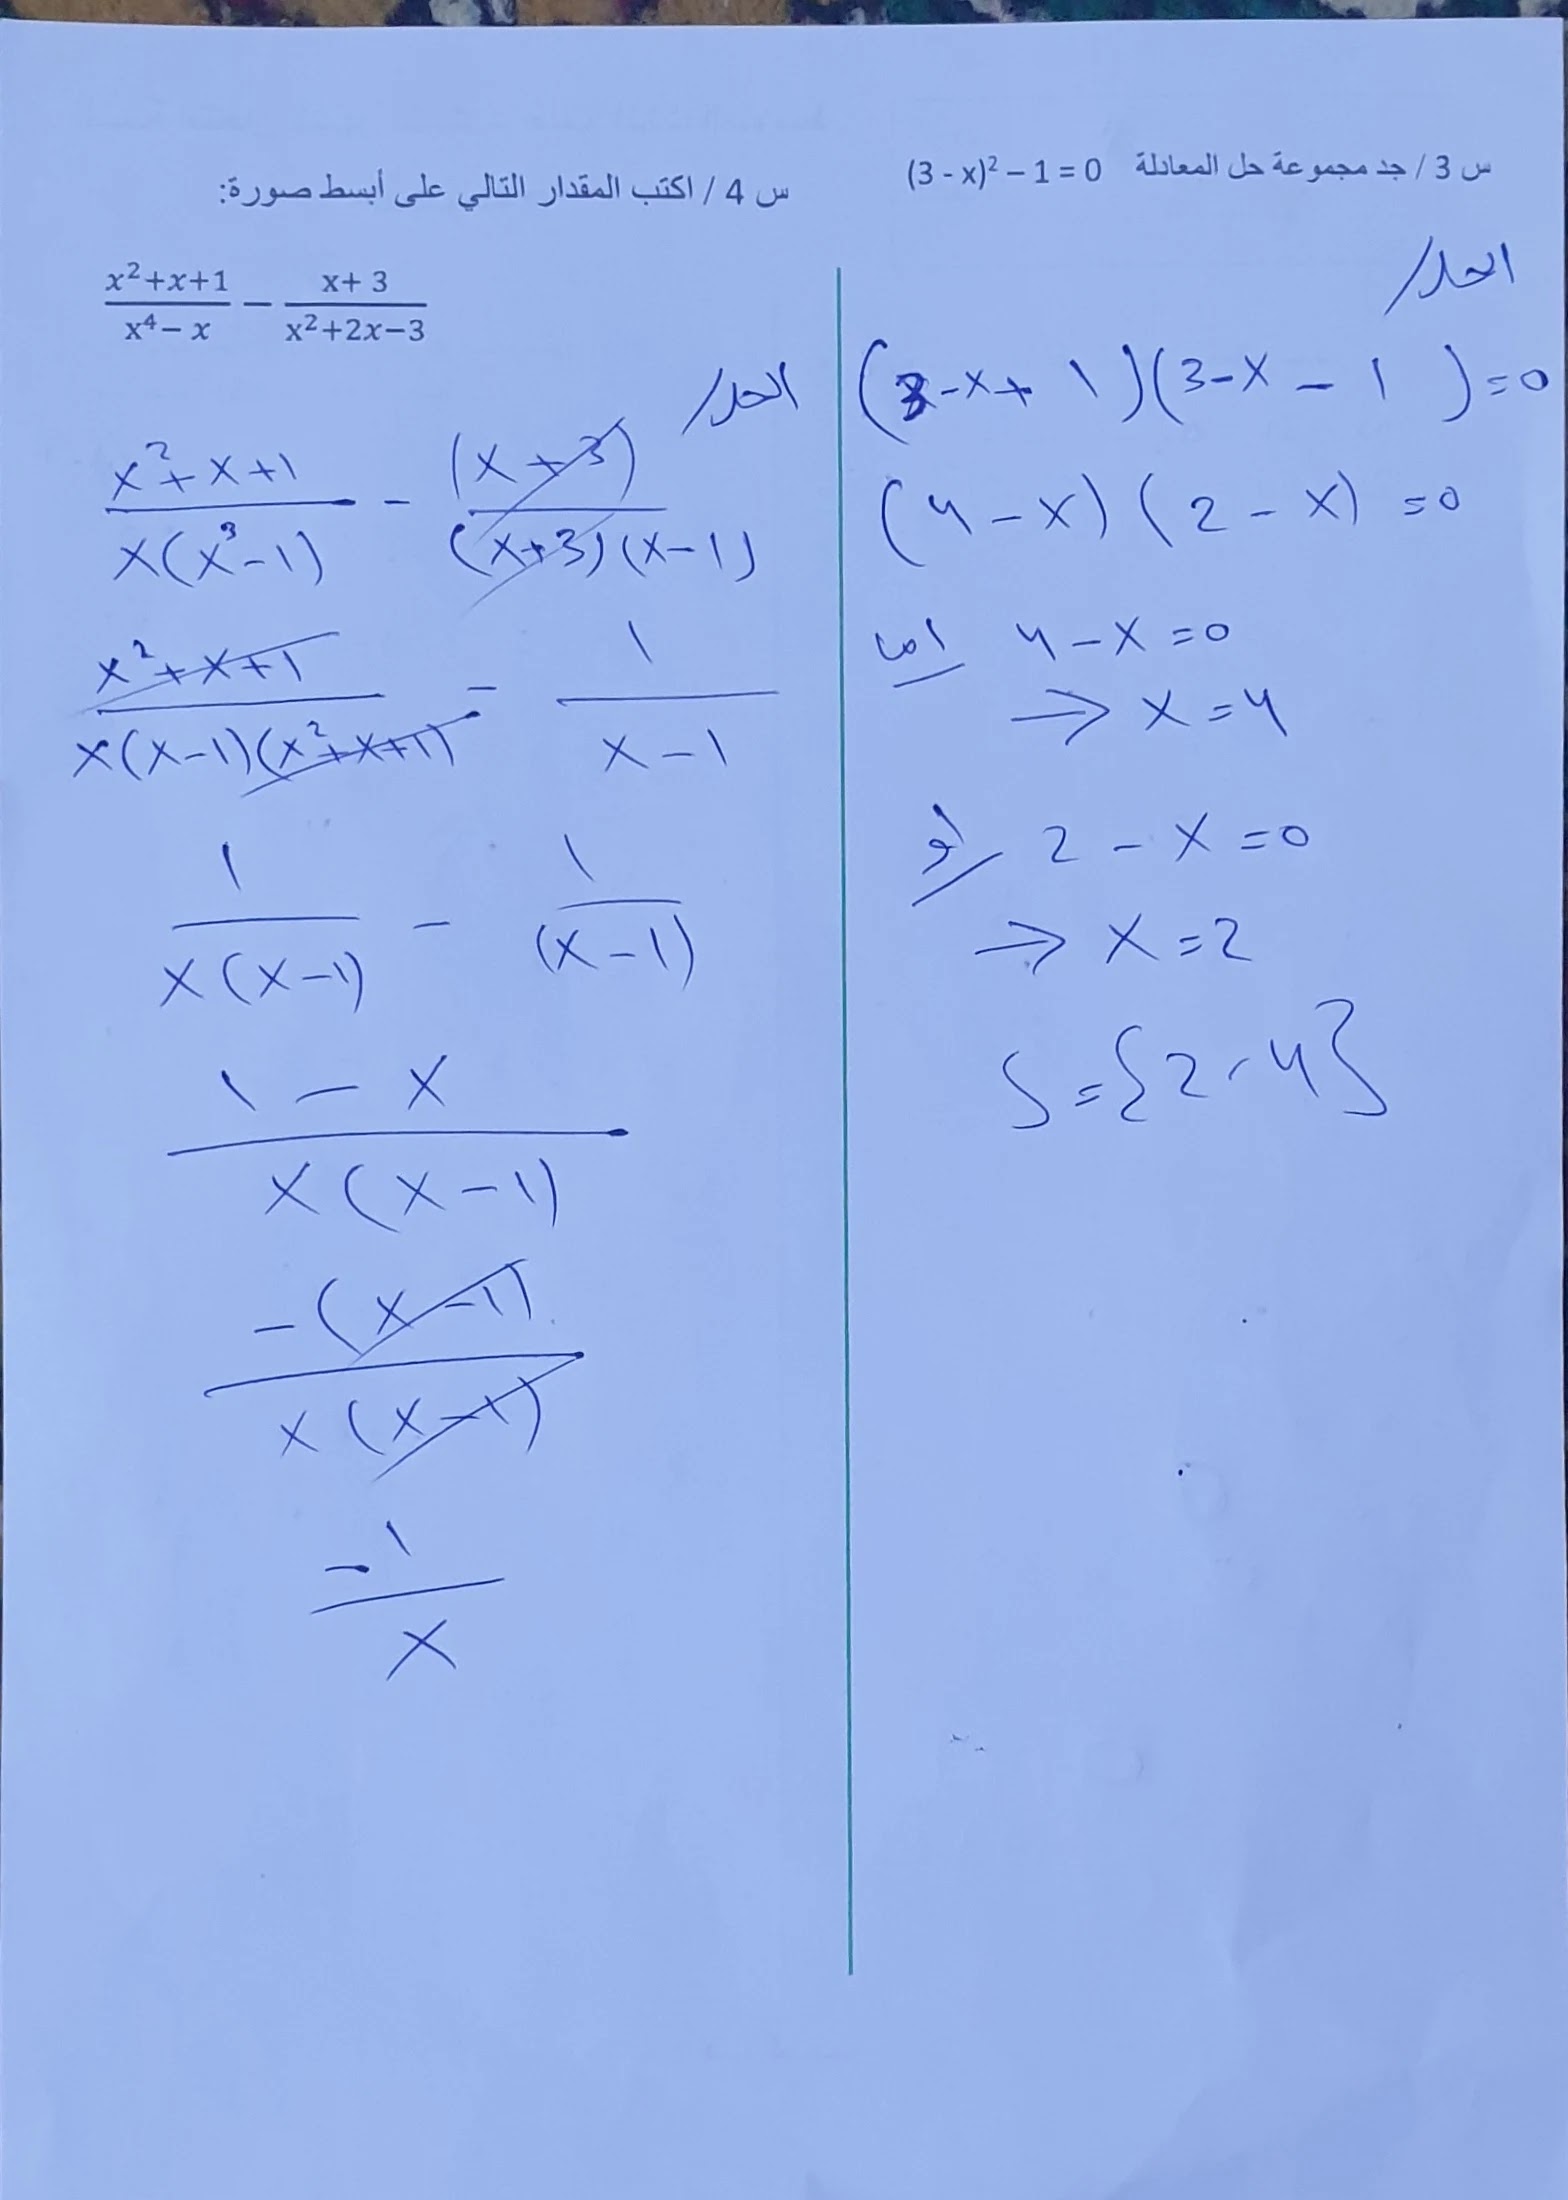 س 3 / جد مجموعة حل المعادلة (3 - x)² – 1 = 0
الحل/
(3-x+1)(3-x-1)=0
(4-x)(2-x)=0
اما 4-x=0
→ x=4
أو 2-x=0
→ x=2
S={2,4}
س 4 / اكتب المقدار التالي على أبسط صورة:
x²+x+1 / x⁴– x − x+ 3 / x²+2x−3
الحل/
x²+x+1 / x(x³-1) - (x+3) / (x+3)(x-1)
x²+x+1 / x(x-1)(x²+x+1) - 1 / x-1
1 / x(x-1) - 1 / (x-1)
1-x / x(x-1)
-(x-1) / x(x-1)
-1 / x